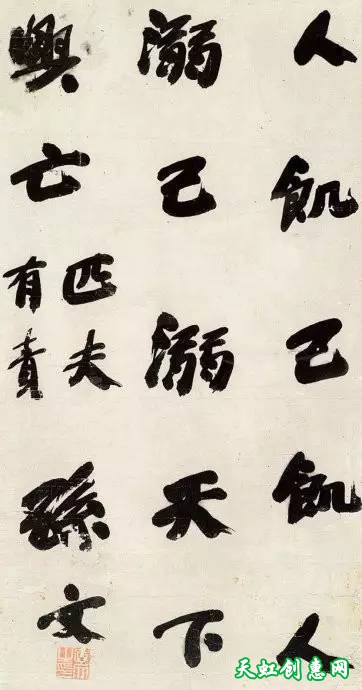 人飢己飢人
溺己溺天下
興亡匹夫有責
孫文
天虹创惠网